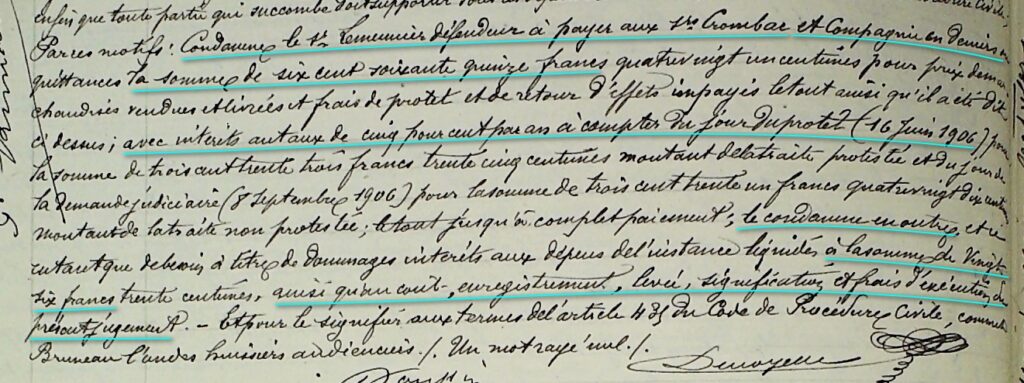 enfin que toute partie qui succombe doit supporter
Par ces motifs: Condamne le Sr Lemeunier défendeur à payer aux Srs Crombar et Compagnie en deniers ou
quittances la somme de six cent soixante quinze francs quatrevingt un centimes pour prix de mar
chandises vendues et livrées et frais de protet et de retour d'effets impayés le tout ainsi qu'il a été dit
ci dessus; avec intérêts au taux de cinq pour cent par an à compter du jour du protet (16 Juin 1906) pour
la somme de trois cent trente trois francs trente cinq centimes montant de la traite protestée et du jour de
la demande judiciaire (8 Septembre 1906) pour la somme de trois cent trente un francs quatrevingt dix centimes
montant de la traite non protestée; le tout jusqu'à complet paiement; le condamne en outre, et ce
en tant que de besoin à titre de dommages intérêts aux dépens de l'instance liquidés à la somme de Vingt
six francs trente centimes, ainsi qu'au coût, enregistrement, levée, signification et frais d'exécution du
présent jugement. - Et pour le signifier aux termes de l'article 435 du Code de Procédure Civile, commet
Bruneau l'un des huissiers audienciers./. Un mot rayé nul./.